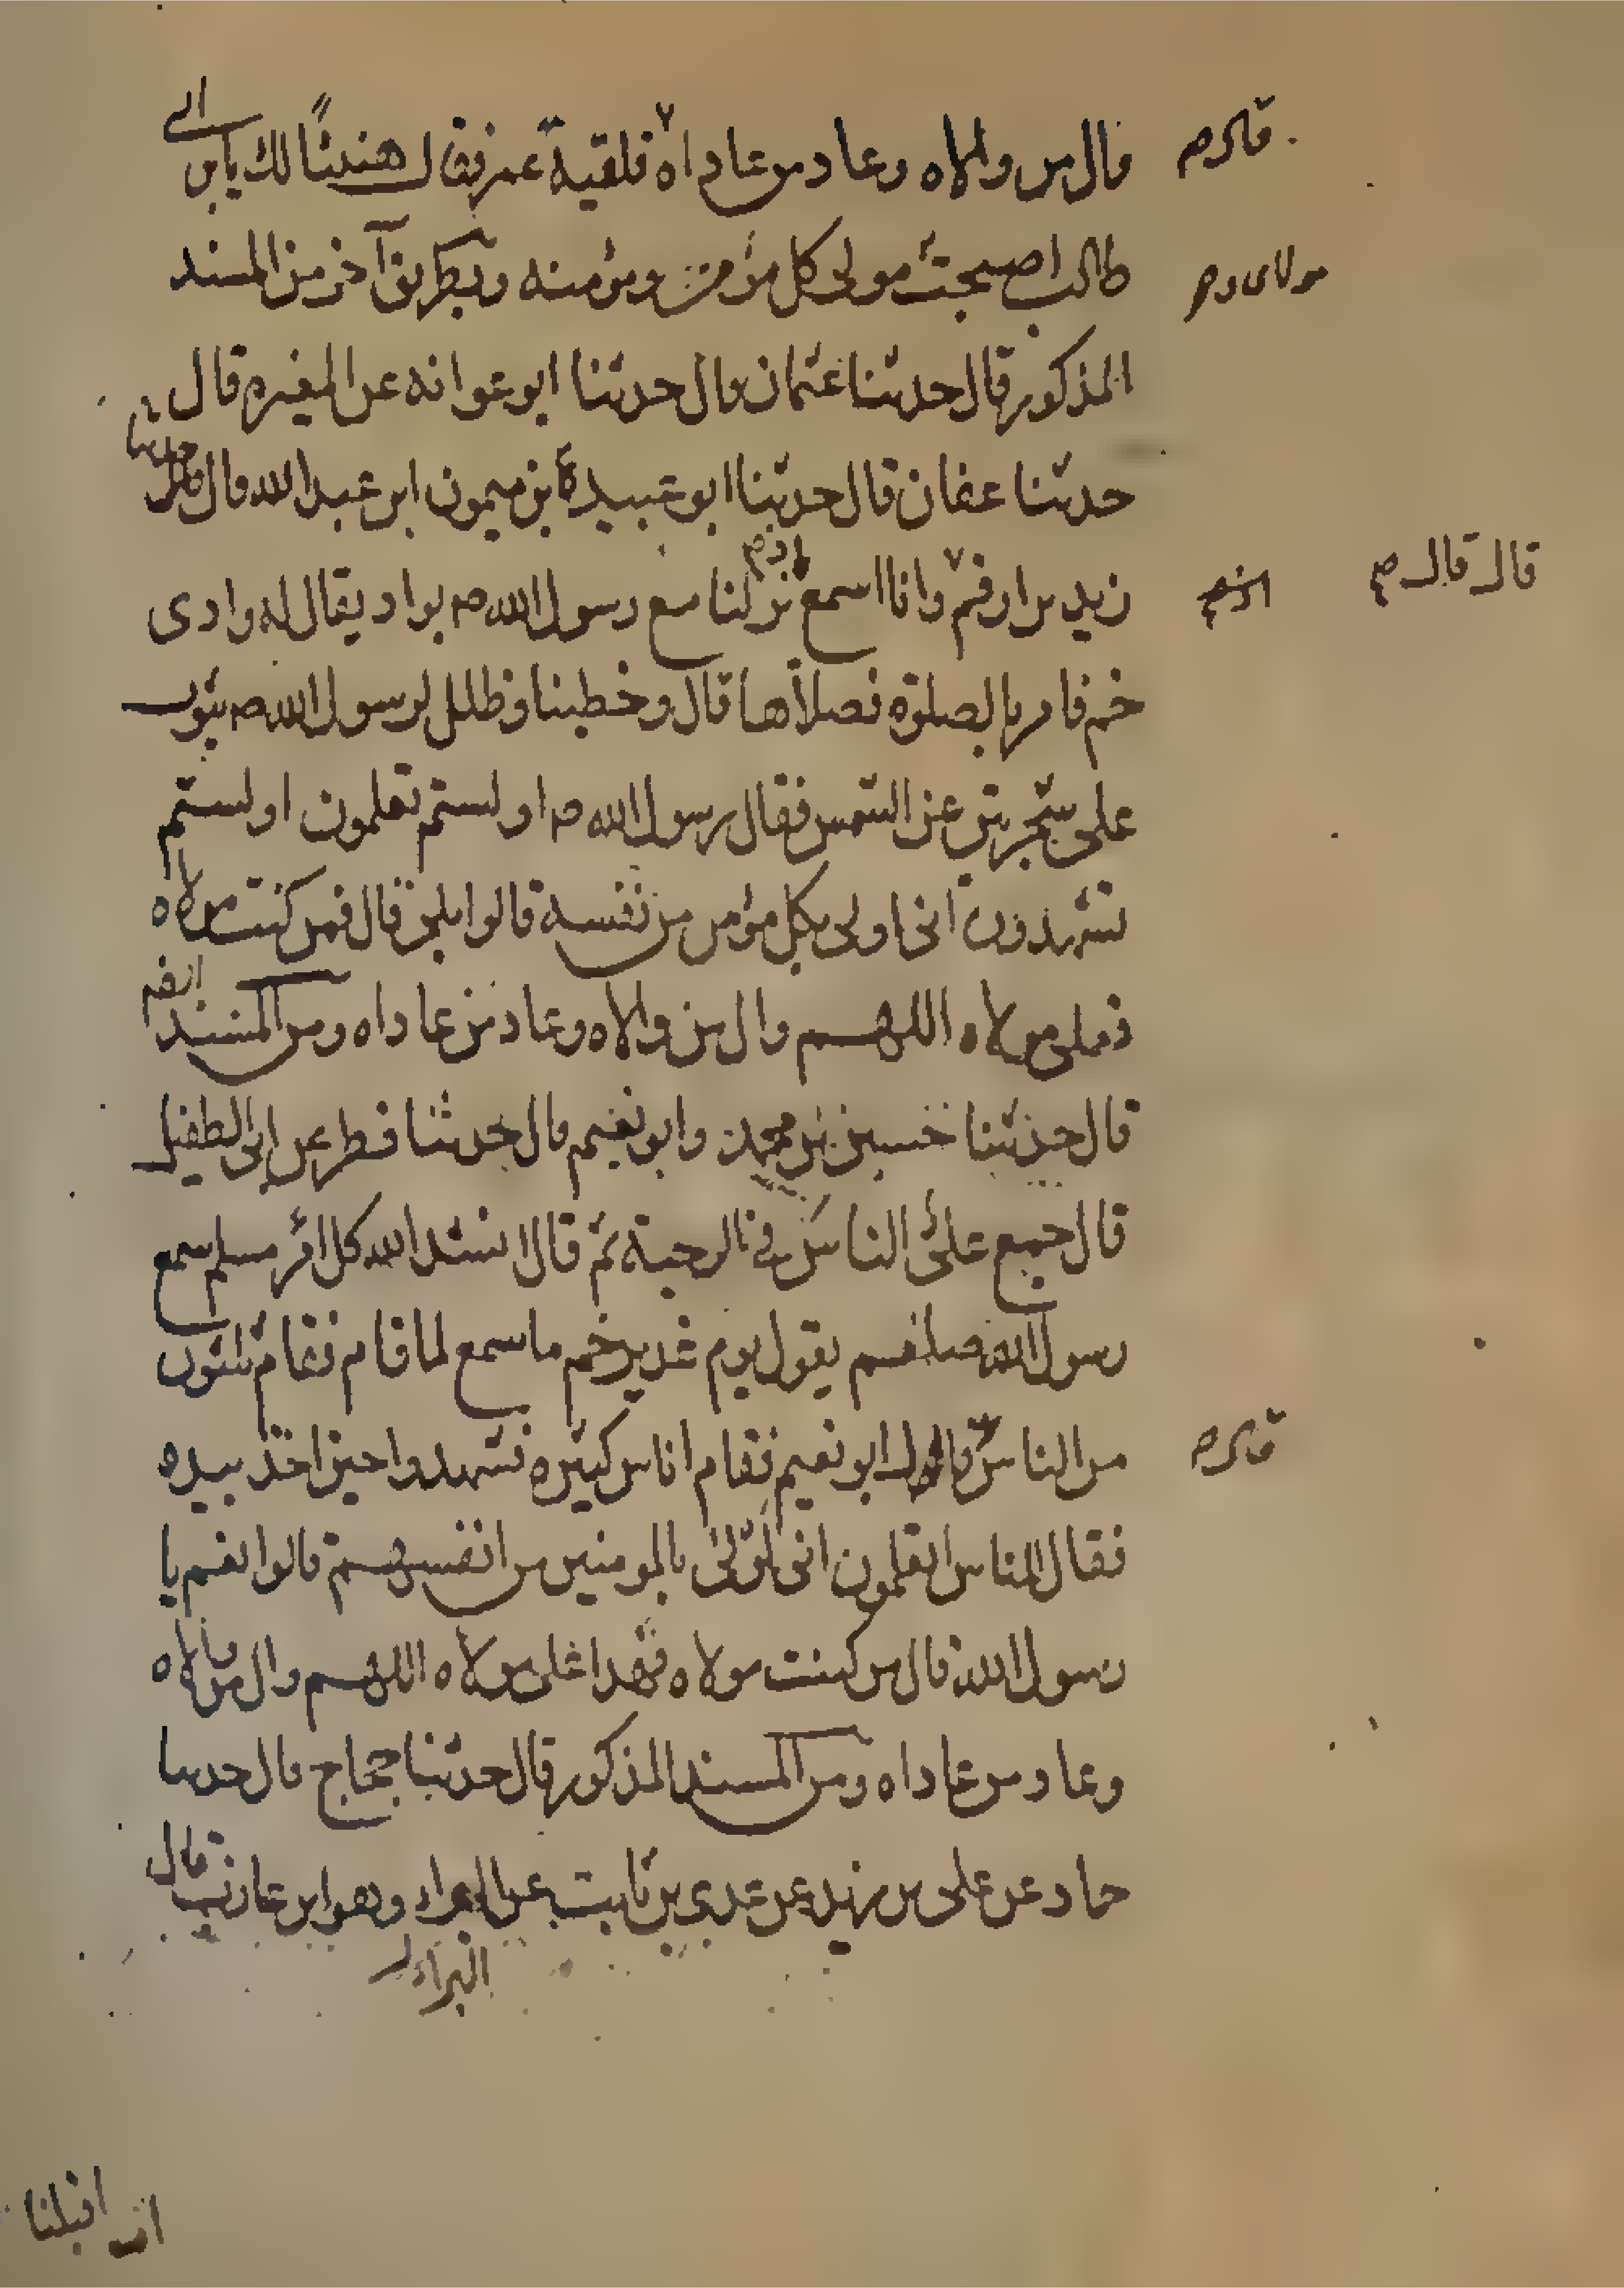 وال من والاه وعاد من عاداه فلقيه عمر فقال هنيئا لك يابن ابي
طالب اصبحت مولى كل مؤمن ومؤمنه وبطريق آخر من المسند
المذكور قال حدثنا عثمان قال حدثنا ابو عوانه عن المغيره قال
حدثنا عفان قال حدثنا ابو عبيدة بن ميمون ابن عبد الله قال قال حدثنا
زيد بن ارقم وانا اسمع نزلنا مع رسول الله ص بواد يقال له وادى
خم فامر بالصلوة فصلاها قال وخطبنا وظلل لرسول الله ص بثوب
على شجرة عن الشمس فقال رسول الله ص اولستم تعلمون اولستم
تشهدون انى اولى بكل مؤمن من نفسه قالوا بلى قال فمن كنت مولاه
فعلى مولاه اللهم وال من والاه وعاد من عاداه ومن المسند ايضا
قال حدثنا حسين بن محمد وابو نعيم قال حدثنا فطر عن ابى الطفيل
قال جمع على الناس فى الرحبة ثم قال انشد الله كل امرئ مسلم سمع
رسول الله صلعم يقول يوم غدير خم ما سمع لما قام فقام ثلثون
من الناس قال ابو نعيم فقام اناس كثيره فشهدوا حين اخذ بيده
فقال للناس اتعلمون انى اولى بالمومنين من انفسهم قالوا نعم يا
رسول الله قال من كنت مولاه فهذا على مولاه اللهم وال من والاه
وعاد من عاداه ومن المسند المذكور قال حدثنا حجاج قال حدثنا
حماد عن على بن زيد عن عدى بن ثابت عن البراء وهو ابن عازب قال
البراء
اقبلنا